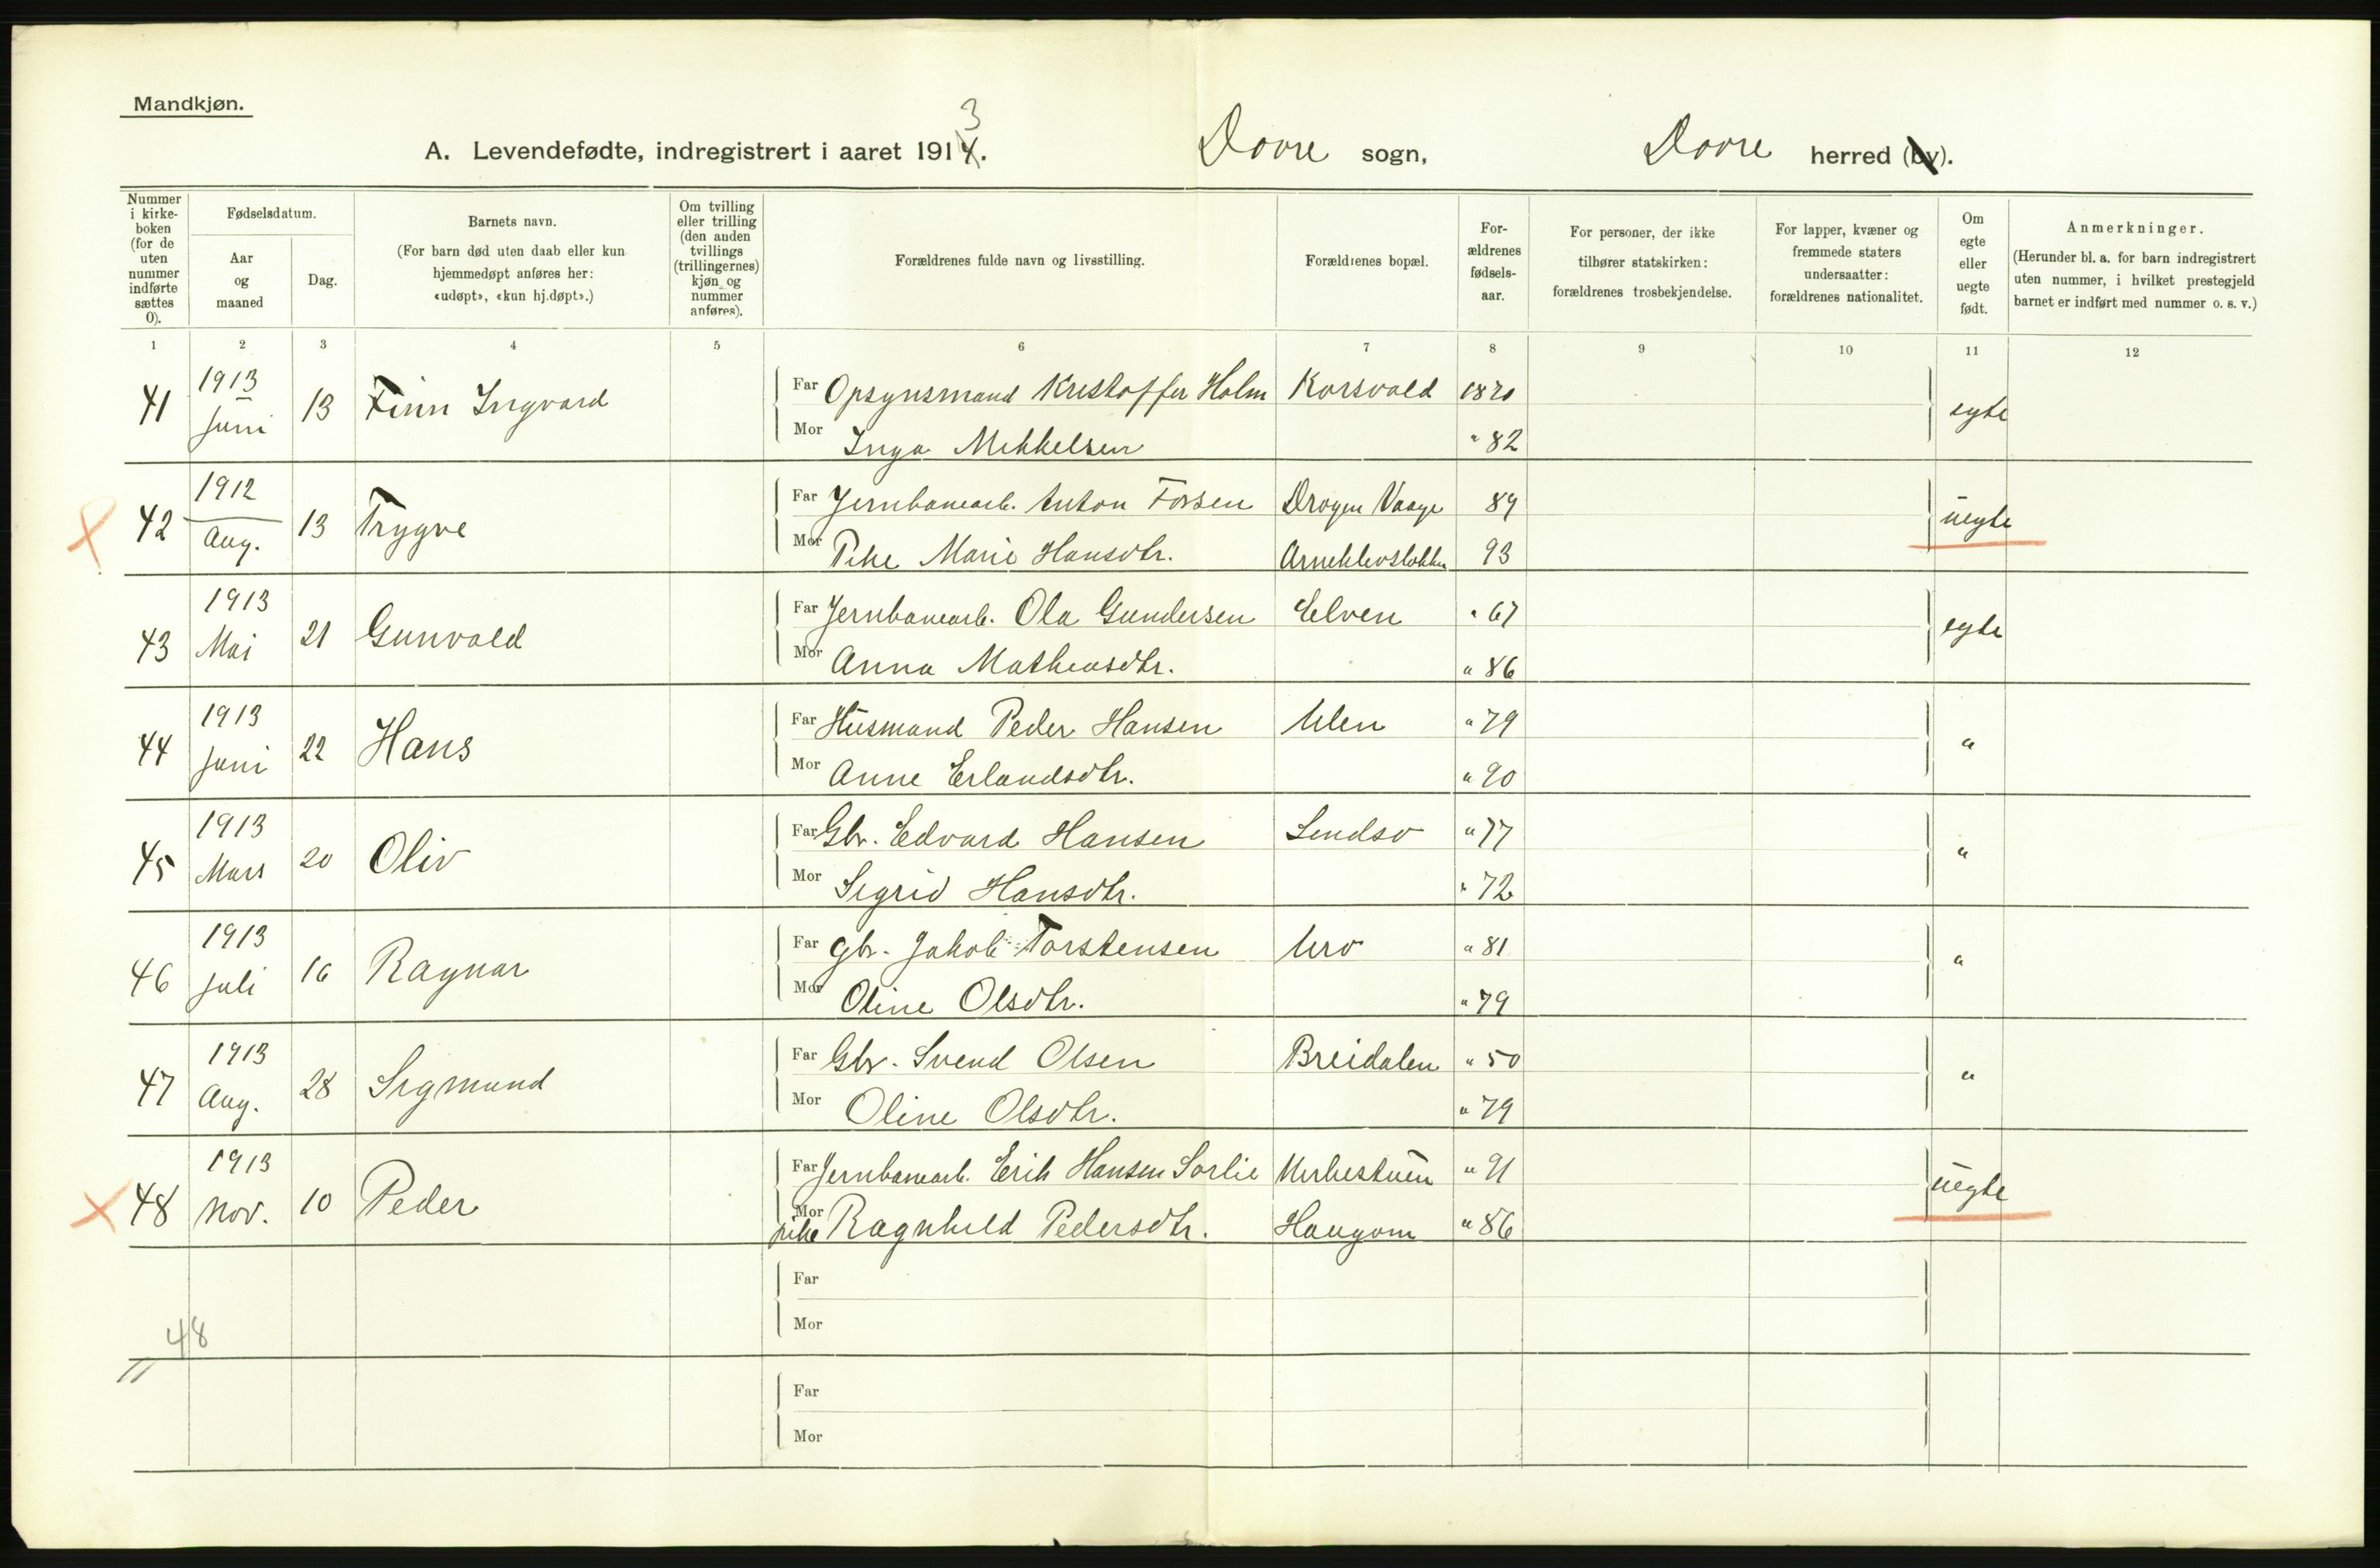 Mandkjøn.
3
A. Levendefødte, indregistrert i aaret 1914. Dovre sogn, Dovre herred (by).
Nummer i kirke-boken (for de uten nummer indførte sættes 0).
Fødselsdatum.
Aar og maaned
Dag.
Barnets navn.
(For barn død uten daab eller kun hjemmedøpt anføres her: «udøpt», «kun hj.døpt».)
Om tvilling eller trilling (den anden tvillings (trillingernes) kjøn og nummer anføres).
Forældrenes fulde navn og livsstilling.
Forældrenes bopæl.
For-ældrenes fødsels-aar.
For personer, der ikke tilhører statskirken: forældrenes trosbekjendelse.
For lapper, kvæner og fremmede staters undersaatter: forældrenes nationalitet.
Om egte eller uegte født.
Anmerkninger.
(Herunder bl. a. for barn indregistrert uten nummer, i hvilket prestegjeld barnet er indført med nummer o. s. v.)
1 2 3 4 5 6 7 8 9 10 11 12
41 1913 Juni 13 Finn Ingvard Far Opsynsmand Kristoffer Holm Korsvold 1870 egte
Mor Inga Mikkelsen " 82
42 1912 Aug. 13 Trygve Far Jernbanearb. Anton Forsen Drogen Vaage 89 uegte
Mor Pike Marie Hansdtr. 93
43 1913 Mai 21 Gunvald Far Jernbanearb. Ola Gundersen Elven " 67 egte
Mor Anna Matheusdtr. " 86
44 1913 Juni 22 Hans Far Husmand Peder Hansen Ulen " 79 "
Mor Anne Erlandsdtr. " 90
45 1913 Mars 20 Oliv Far Gbr. Edvard Hansen Lindsø " 77 "
Mor Sigrid Hansdtr. " 72
46 1913 Juli 16 Ragnar Far Gbr. Jakob Torstensen Uro " 81 "
Mor Oline Olsdtr. " 79
47 1913 Aug. 28 Sigmund Far Gbr. Svend Olsen Breidalen " 50 "
Mor Oline Olsdtr. " 79
48 1913 Nov. 10 Peder Far Jernbanearb. Erik Hansen Sørlie " 91 uegte
Mor pike Ragnhild Pedersdtr. Haugom " 86
Far
48 Mor
Far
Mor